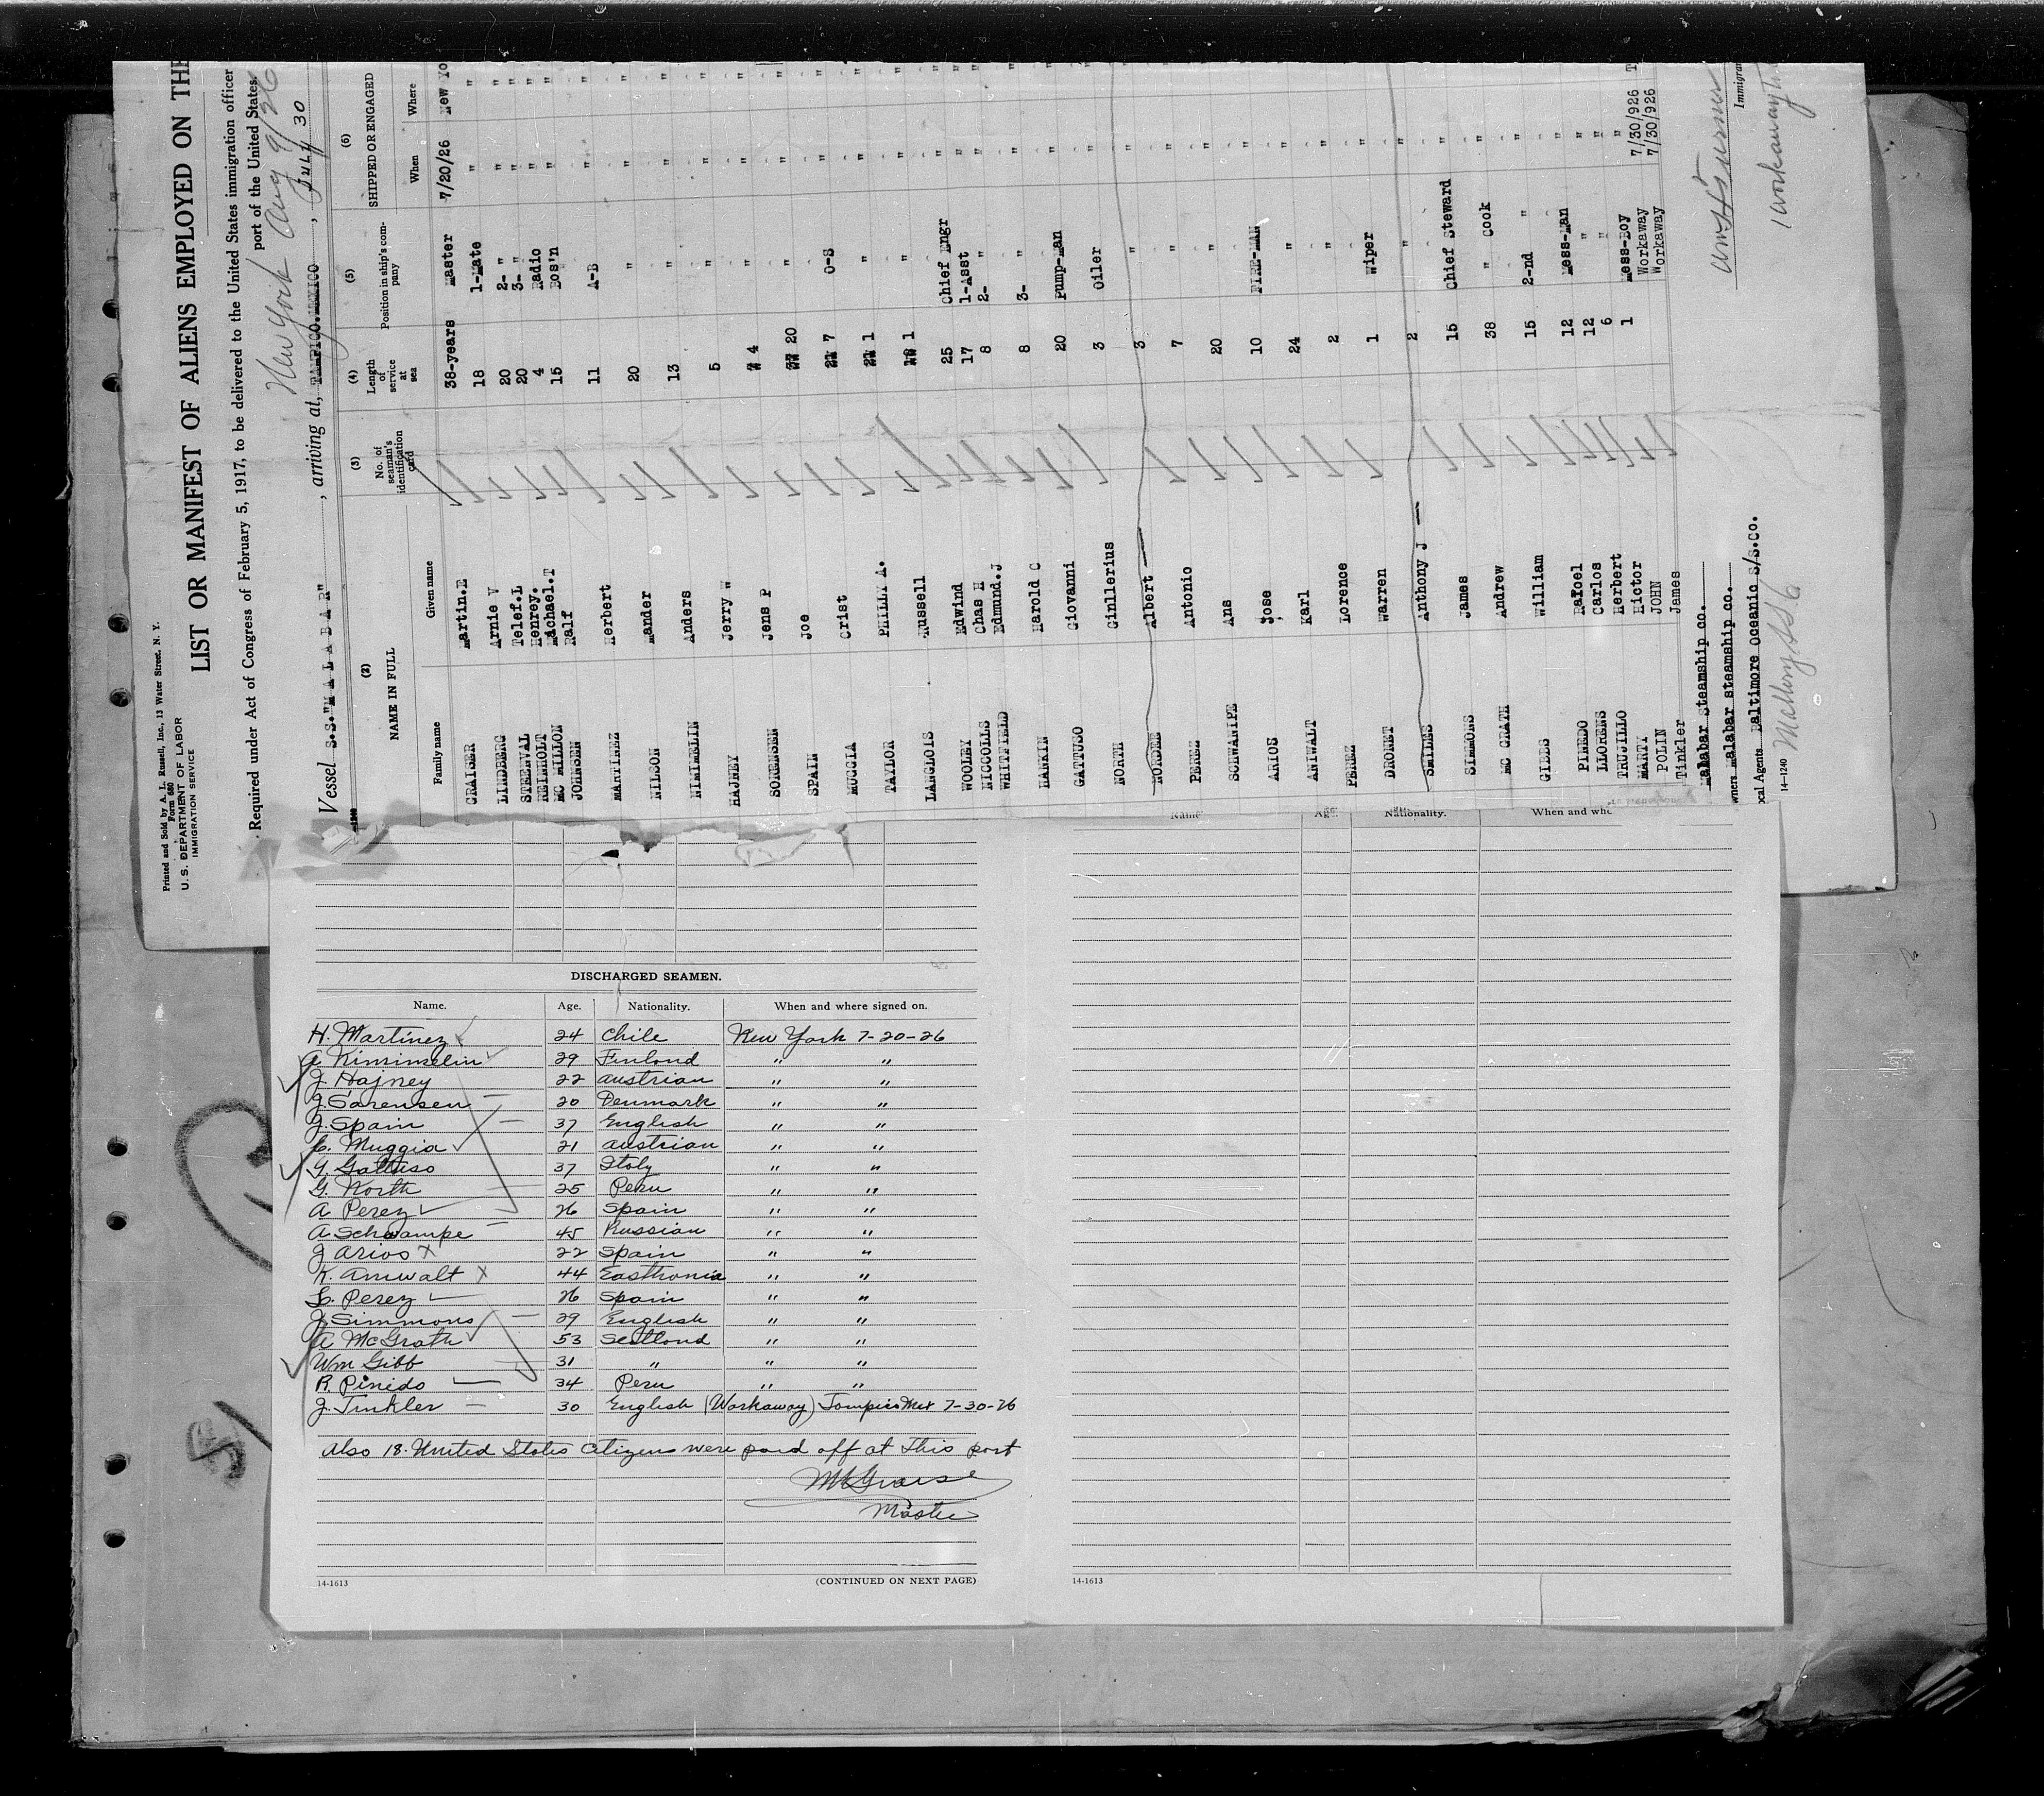 Printed and Sold by A. L. Russell, Inc., 13 Water Street, N. Y.
Form 680
U. S. DEPARTMENT OF LABOR
IMMIGRATION SERVICE
LIST OR MANIFEST OF ALIENS EMPLOYED ON THE
Required under Act of Congress of February 5, 1917, to be delivered to the United States immigration officer
port of the United States
New York Aug 9/26
Vessel S.S."M A L A B A R", arriving at, TAMPICO.MEXICO, JULY 30
(2) (3) (4) (5) (6)
NAME IN FULL No. of seaman's identification card Length of service at sea Position in ship's company SHIPPED OR ENGAGED
Family name Given name When Where
GRAISER Martin.E 38-years Master 7/20/26 New Yo
LINDBERG Arnie V 18 1-Mate " "
STEENVAL Telef.L 20 2- " " "
REINHOLT Henrey. 20 3- " " "
MC MILLON Machael.T 4 Radio " "
JOHNSEN Ralf 15 Bos'n " "
MARTINEZ Herbert 11 A-B " "
NILSON Mander 20 " " "
NIMIMELIN Anders 13 " " "
HAJNEY Jerry W 5 " " "
SORENSEN Jens P 4 " " "
SPAIN Joe 20 " " "
MUGGIA Crist 7 O-S " "
TAYLOR PHILLY A. 1 " " "
LANGLOIS Russell 1 " " "
WOOLEY Edwind 25 Chief Engr " "
NICCOLLS Chas H 17 1-Asst " "
WHITFIELD Edmund.J 8 2- " " "
HANKIN Harold C 8 3- " " "
GATTUSO Giovanni 20 Pump-Man " "
NORTH Ginllerius 3 Oiler " "
NORDEE Albert 3 " " "
PEREZ Antonio 7 " " "
SCHWANIPE Ans 20 " " "
ARIOS Jose 10 FIRE-MAN " "
ANIWALT Karl 24 " " "
PEREZ Lorence 2 " " "
DRONET Warren 1 Wiper " "
SMILES Anthony J 2 " " "
SIMMONS James 15 Chief Steward " "
MC GRATH Andrew 38 " Cook " "
GIBBS William 15 2-nd " " "
PINEDO Rafoel 12 Mess-Man " "
LLORENS Carlos 12 " " "
TRUJILLO Herbert 6 " " "
MARTY Hictor 1 Mess-Boy " "
POLIN JOHN Workaway 7/30/926 T
Tinkler James Workaway 7/30/926
Malabar steamship co.
wners Malabar steamship co.
ocal Agents Baltimore Oceanic S/S.CO.
14-1240 Mallory SS Co
Immigran
1 workaway
Name Age. Nationality. When and whe
DISCHARGED SEAMEN.
Name. Age. Nationality. When and where signed on.
H. Martinez 24 Chile New York 7-20-26
A. Kimimelin 29 Finlond " "
J. Hajney 22 Austrian " "
J. Sorensen 20 Denmark " "
J. Spain 37 English " "
C. Muggia 21 Austrian " "
G. Gattuso 37 Italy " "
G. North 25 Peru " "
A Perez 26 Spain " "
A Schwampe 45 Russian " "
J Arios 22 Spain " "
K. Aniwalt 44 Easthonia " "
L. Perez 26 Spain " "
J. Simmons 29 English " "
A McGrath 53 Scotlond " "
Wm Gibb 31 " " "
R. Pinedo 34 Peru " "
J. Tinkler 30 English (Workaway) Tampico Mex 7-30-26
Also 18. United States Citizens were paid off at this port
Master
14-1613 (CONTINUED ON NEXT PAGE) 14-1613